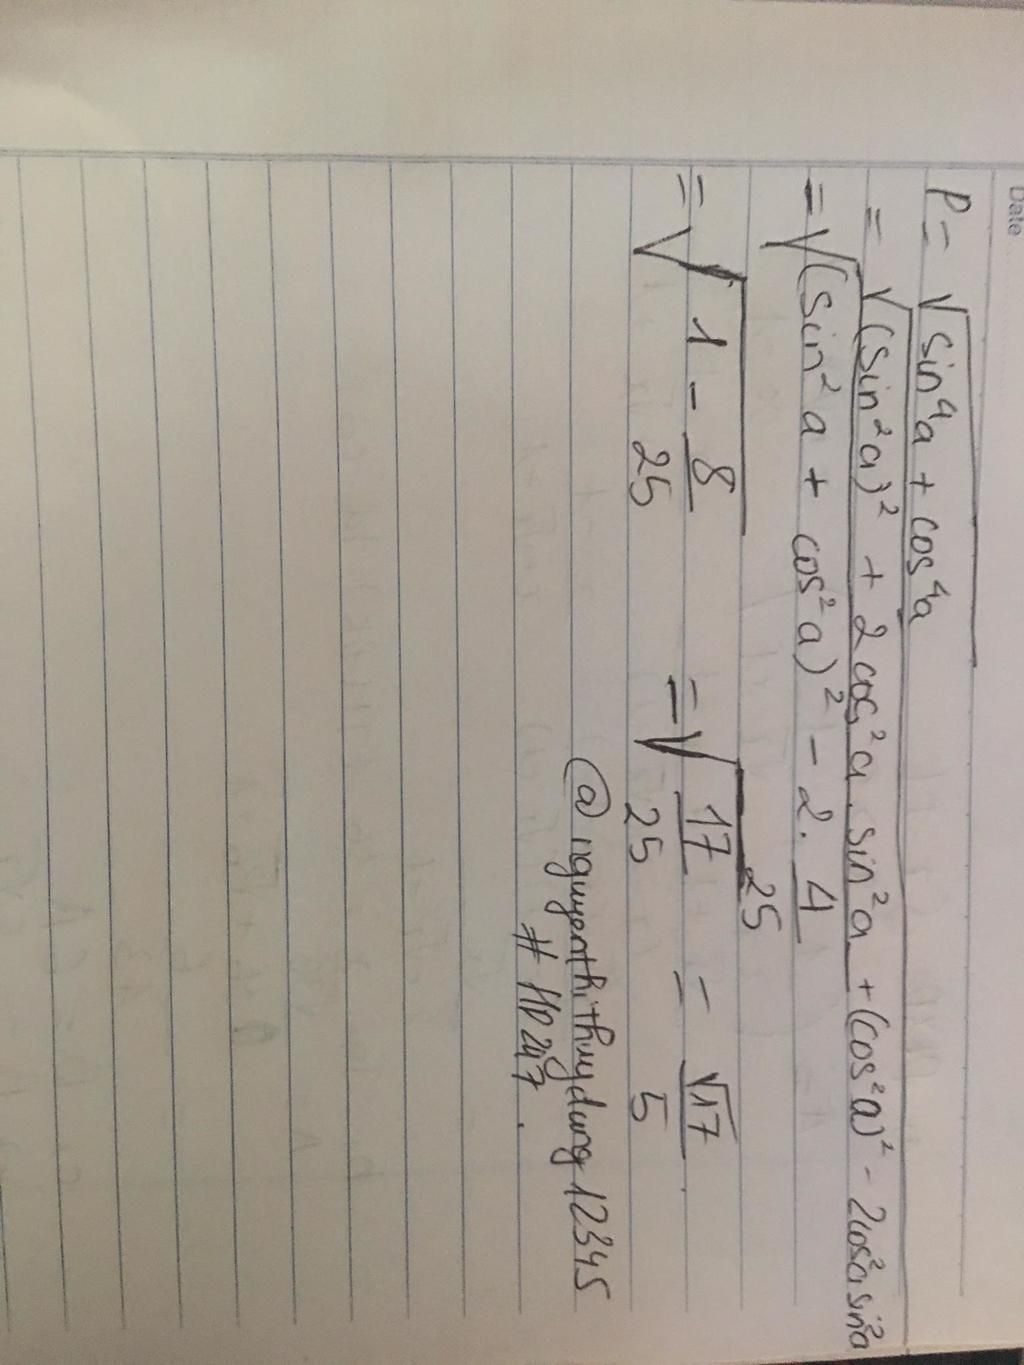 Date
P = √(sin⁴a + cos⁴a)
= √((sin²a)² + 2cos²a.sin²a + (cos²a)² - 2cos²a sin²a)
= √((sin²a + cos²a)² - 2. 4/25)
= √(1 - 8/25) = √(17/25) = √17/5.
@nguyenthithuydung12345
# HD247.